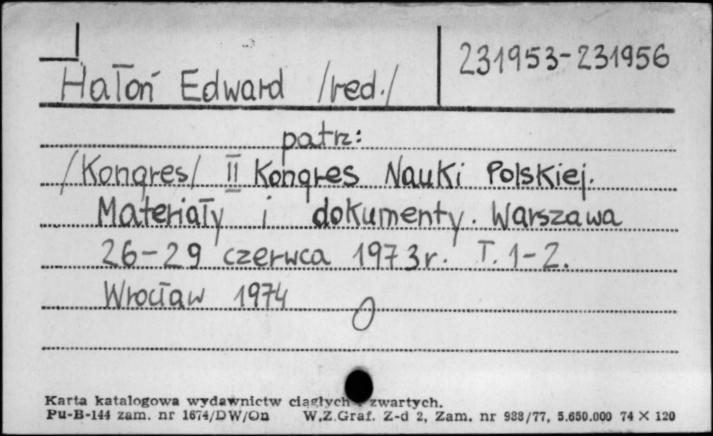 231953-231956
Hałoń Edward /red./
patrz:
/Kongres/ II Kongres Nauki Polskiej.
Materiały i dokumenty. Warszawa
26-29 czerwca 1973r. T. 1-2.
Wrocław 1974
Karta katalogowa wydawnictw ciągłych i zwartych.
Pu-B-144 zam. nr 1674/DW/On W.Z.Graf. Z-d 2, Zam. nr 988/77, 5.650.000 74 × 120